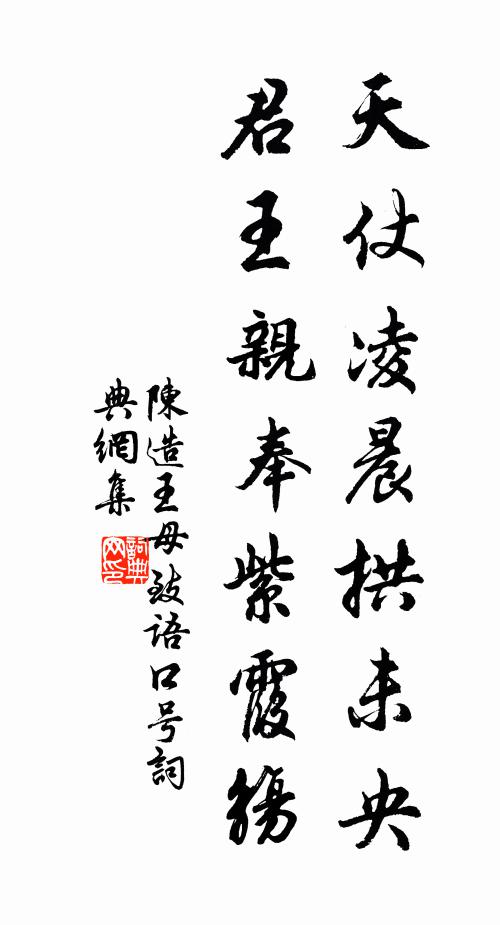 天仗凌晨拱未央
君王親奉紫霞觴
陳造王母致語口号詞
典網集
詞典
网印